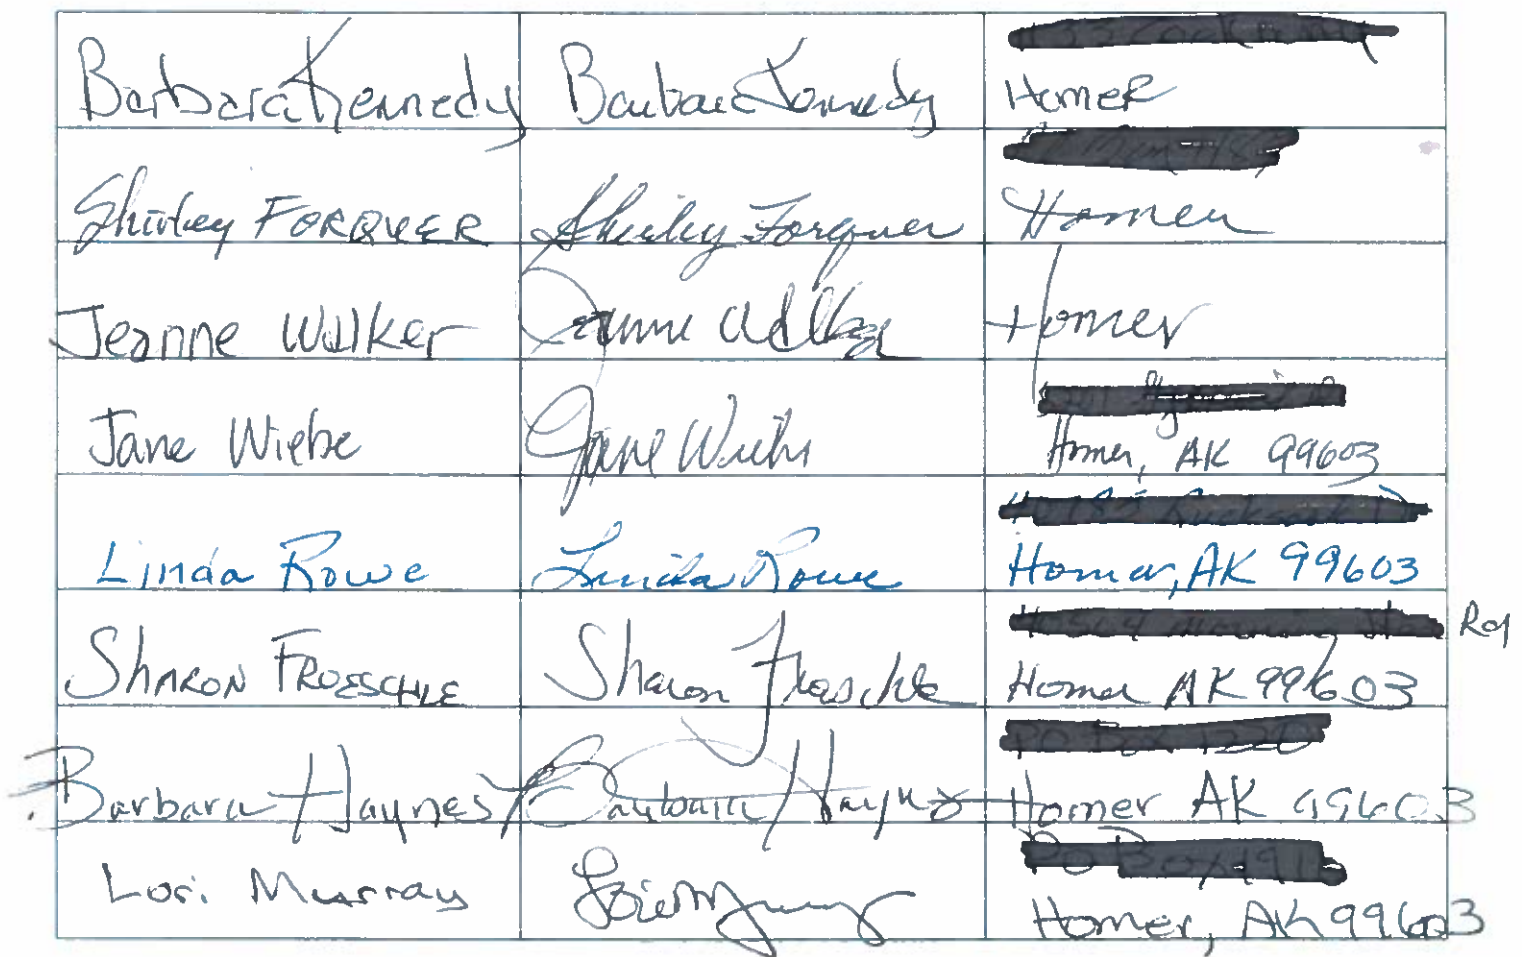 Barbara Kennedy Barbara Kennedy
Homer
Shirley FORQUER Shirley Forquer Homer
Jeanne Walker Jeanne Walker Homer
Jane Wiebe Jane Wiebe
Homer, AK 99603
Linda Rowe Linda Rowe Homer, AK 99603
Rd
SHARON FROESCHLE Sharon Froeschle Homer AK 99603
Barbara Haynes Barbara Haynes Homer AK 99603
Lori Murray Lori Murray
Homer, AK 99603